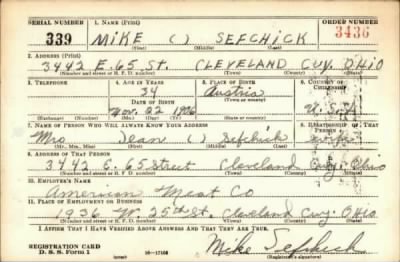 SERIAL NUMBER 1. NAME (Print) ORDER NUMBER
339 MIKE ( ) SEFCHICK 3436
(First) (Middle) (Last)
2. ADDRESS (Print)
3442 E. 65 ST. CLEVELAND CUY. OHIO
(Number and street or R. F. D. number) (Town) (County) (State)
3. TELEPHONE 4. AGE IN YEARS 5. PLACE OF BIRTH 6. COUNTRY OF CITIZENSHIP
34 Austria
DATE OF BIRTH (Town or county)
Nov. 22 1906 U.S.A.
(Exchange) (No.) (Mo.) (Day) (Yr.) (State or country)
7. NAME OF PERSON WHO WILL ALWAYS KNOW YOUR ADDRESS 8. RELATIONSHIP OF THAT PERSON
Mrs Jean ( ) Sefchick wife
(Mr., Mrs., Miss) (First) (Middle) (Last)
9. ADDRESS OF THAT PERSON
3442 E. 65 Street Cleveland Cuy. Ohio
(Number and street or R. F. D. number) (Town) (County) (State)
10. EMPLOYER'S NAME
American Meat Co
11. PLACE OF EMPLOYMENT OR BUSINESS
1936 W. 25th St. Cleveland Cuy. Ohio
(Number and street or R. F. D. number) (Town) (County) (State)
I AFFIRM THAT I HAVE VERIFIED ABOVE ANSWERS AND THAT THEY ARE TRUE.
REGISTRATION CARD
D. S. S. Form 1 16—17105 Mike Sefchick
(Registrant's signature)